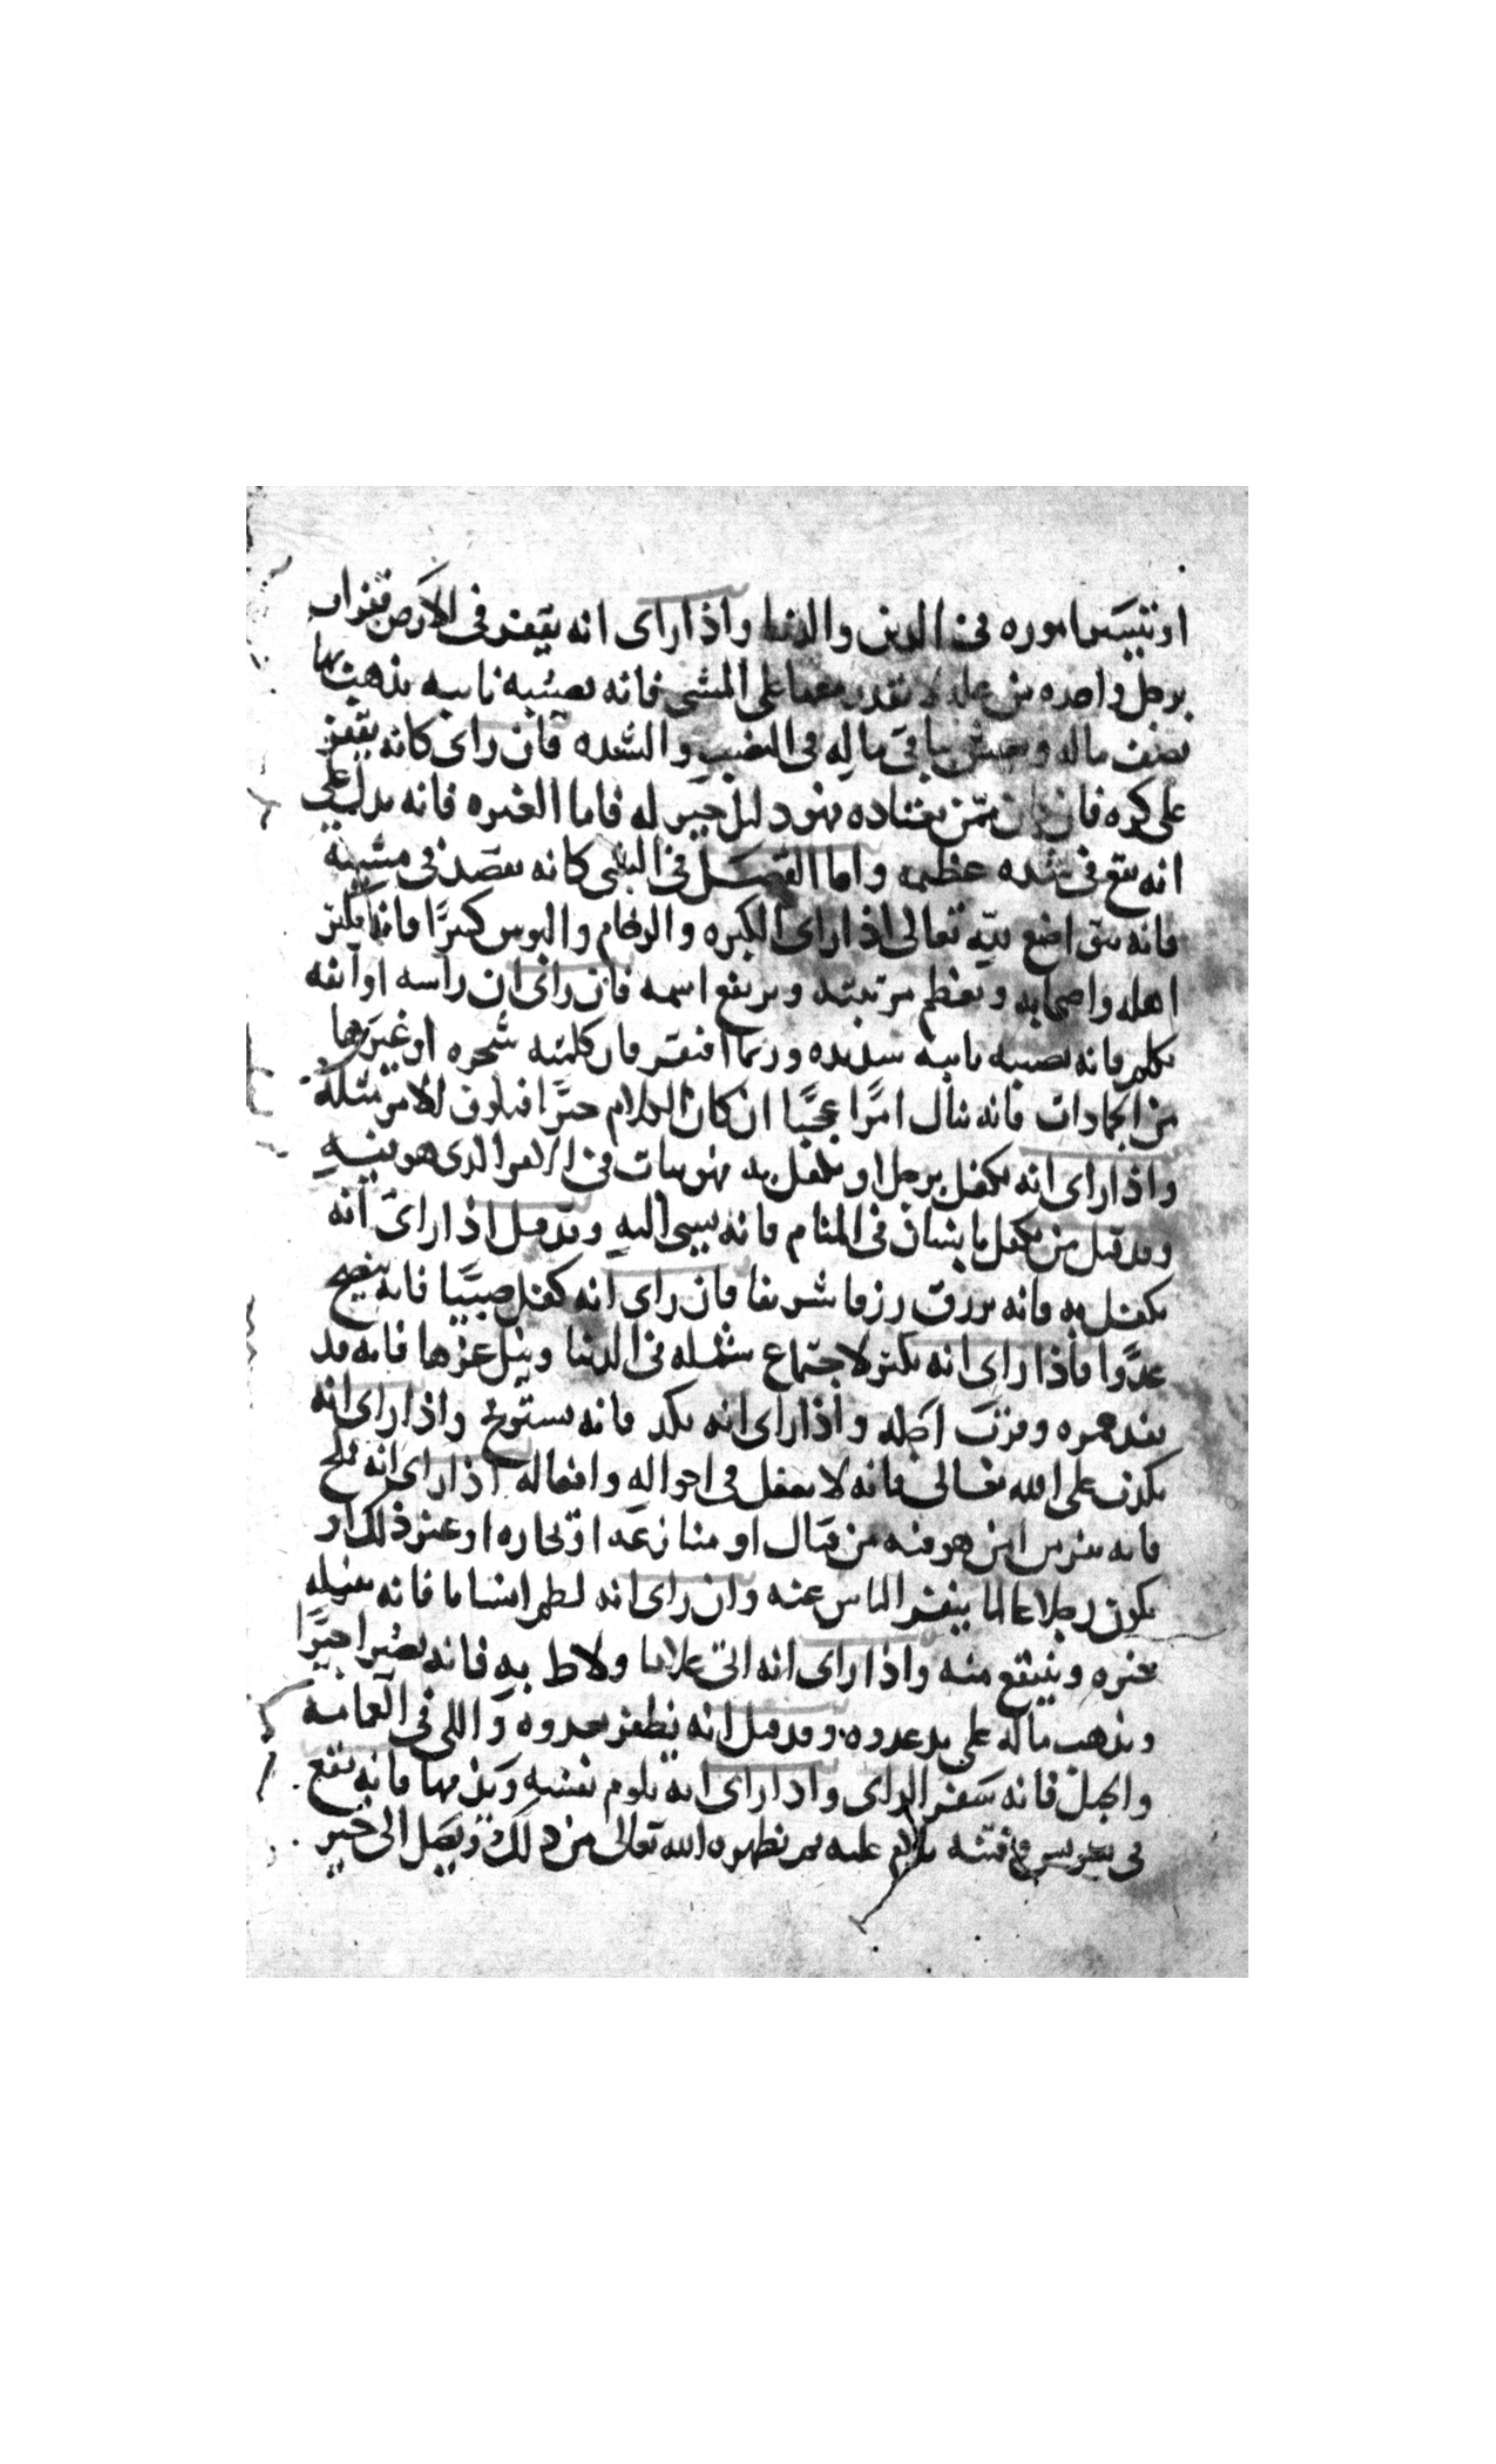 او تتيسر اموره في الدين والدنيا واذا راى انه يقفز في الارض قفزات
برجل واحده من عله لا يقدر معها على المشي فانه تصيبه نايبه يذهب بها
نصف ماله ويعيش بباقي ماله في النصب والشده فان راى كانه يقفز
على كره فان كان ممن يعتاده فهو دليل خير له فاما العبره فانه يدل على
انه يقع في شده عظيمه واما القصد في المشي كانه يقصد في مشيه
فانه يتواضع لله تعالى اذا راى الكبره والزحام والبوس كبيرًا فانه يكثر
اهله واصحابه وتعظم مرتبته ويرتفع اسمه فان راى ان راسه او انفه
تكلم فانه تصيبه نايبه شديده وربما افتقر فان كلمته شجره او غيرها
من الجمادات فانه ينال امرًا عجبًا ان كان الكلام خيرًا
واذا راى انه تكفل برجل او تكفل به فهو ثبات في الامر الذي هو فيه
وقد قيل من تكفل بانسان في المنام فانه يسي اليه وقد قيل اذا راى انه
يكفل به فانه يرزق رزقا شريفا فان راى انه كفل صبيًا فانه ينصح
عدوًا فاذا راى انه يكثر لاجتماع شمله في الدنيا ونيل عزها فانه قد
نفد عمره وقرب اجله واذا راى انه يكد فانه يستريح واذا راى انه
يكذب على الله تعالى فانه لا يعقل في احواله وافعاله اذا راى انه ملح
فانه من هو فيه من قتال او منازعه او تجاره او غير ذلك او
يكون رجلا عالما ينفر الناس عنه وان راى انه لطم انسانا فانه يعظه
غيره وينتفع منه واذا راى انه اتى غلاما ولاط به فانه
ويذهب ماله على يد عدوه وقد قيل انه يظفر بعدوه واللي في العمامه
والحبل فانه سفر الراى واذا راى انه يلوم نفسه ويذمها فانه يقع
في فتنه يلام عليه ثم يظهره الله تعالى من ذلك ويصل الى خير